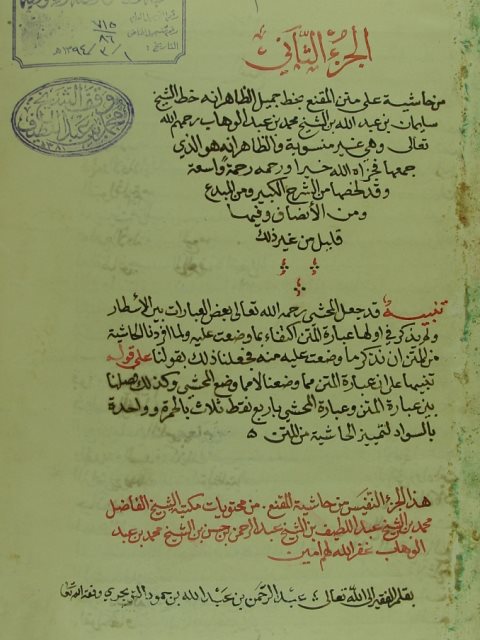 ٧١٥
٨٦
التاريخ: ١ / ٣ / ١٣٩٤هـ
الجزء الثاني
من حاشية على متن المقنع بخط جميل الظاهر انه خط الشيخ
سليمان بن عبد الله بن الشيخ محمد بن عبد الوهاب رحمهم الله
تعالى وهي غير منسوبة والظاهر انه هو الذي
جمعها فجزاه الله خيرا ورحمه رحمة واسعة
وقد لخصها من الشرح الكبير ومن المبدع
ومن الأنصاف وفيها
قليل من غير ذلك
تنبيه قد جعل المحشي رحمه الله تعالى بعض العبارات بين الأسطار
ولم يذكر في اولها عبارة المتن اكتفاء بما وضعت عليه ولما افردنا الحاشية
من المتن ان نذكر ما وضعت عليه منه فجعلنا ذلك بقولنا على قوله
تنبيها على ان عبارة المتن مما وضعنا لا مما وضع المحشي وكذلك فصلنا
بين عبارة المتن وعبارة المحشي باربع نقط ثلاث بالحمرة وواحدة
بالسواد لتميز الحاشية من المتن ه
هذا الجزء النفيس من حاشية المقنع . من محتويات مكتبة الشيخ الفاضل
محمد بن الشيخ عبد اللطيف بن الشيخ عبد الرحمن بن حسن بن الشيخ محمد بن عبد
الوهاب غفر الله لهم امين
بقلم الفقير الى الله تعالى عبد الرحمن بن عبد الله بن حمود التويجري وفقه الله تعالى